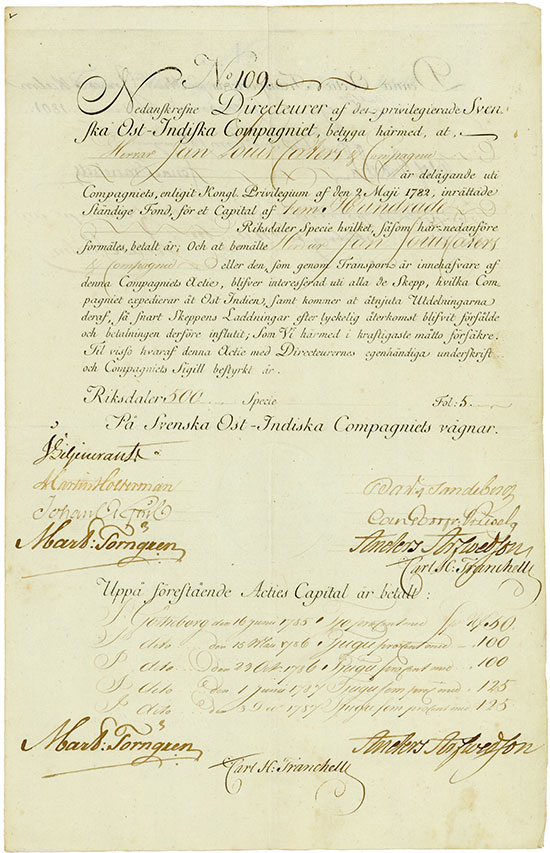 No 109.
Nedanskrefne Directeurer af det privilegierade Sven-
ska Ost-Indiska Compagniet, betyga härmed, at
Herrar Jan Louis & Compagnie
är delägande uti
Compagniets, enligit Kongl. Privilegium af den 2 Maji 1782, inrättade
Ständige Fond, för et Capital af Fem Hundrade
Riksdaler Specie hvilket, såsom här nedanföre
formäles, betalt är; Och at bemälte Herrar Jan Louis
& Compagnie eller den, som genom Transport är innehafvare af
denna Compagniets Actie, blifver interesserad uti alla de Skepp, hvilka Com-
pagniet expedierar åt Ost Indien, samt kommer at åtnjuta Utdelningarna
deraf, så snart Skeppens Laddningar efter lyckelig återkomst blifvit försålde
och betalningen derföre influtit; Som Vi härmed i kraftigaste måtto försäkre.
Til visso hvaraf denna Actie med Directeurernes egenhändiga underskrift
och Compagniets Sigill bestyrkt är.
Riksdaler 500 Specie Fol: 5.
På Svenska Ost-Indiska Compagniets vägnar.
Martin Holterman
David Sandeberg
Johan
Mart: Törngren
Anders Arfwedson
Carl H: Tranchell
Uppå förestående Acties Capital är betalt:
P Götheborg den 16 Junii 1785 Tijo procent med Sp Rd 50
P dito den 15 Mar 1786 Tjugu procent med 100
P dito den 23 Oct 1786 Tjugu procent med 100
P dito den 1 Junii 1787 Tjugu fem procent med 125
P dito den 3 Dec 1787 Tjugu fem procent med 125
Mart: Törngren
Anders Arfwedson
Carl H: Tranchell